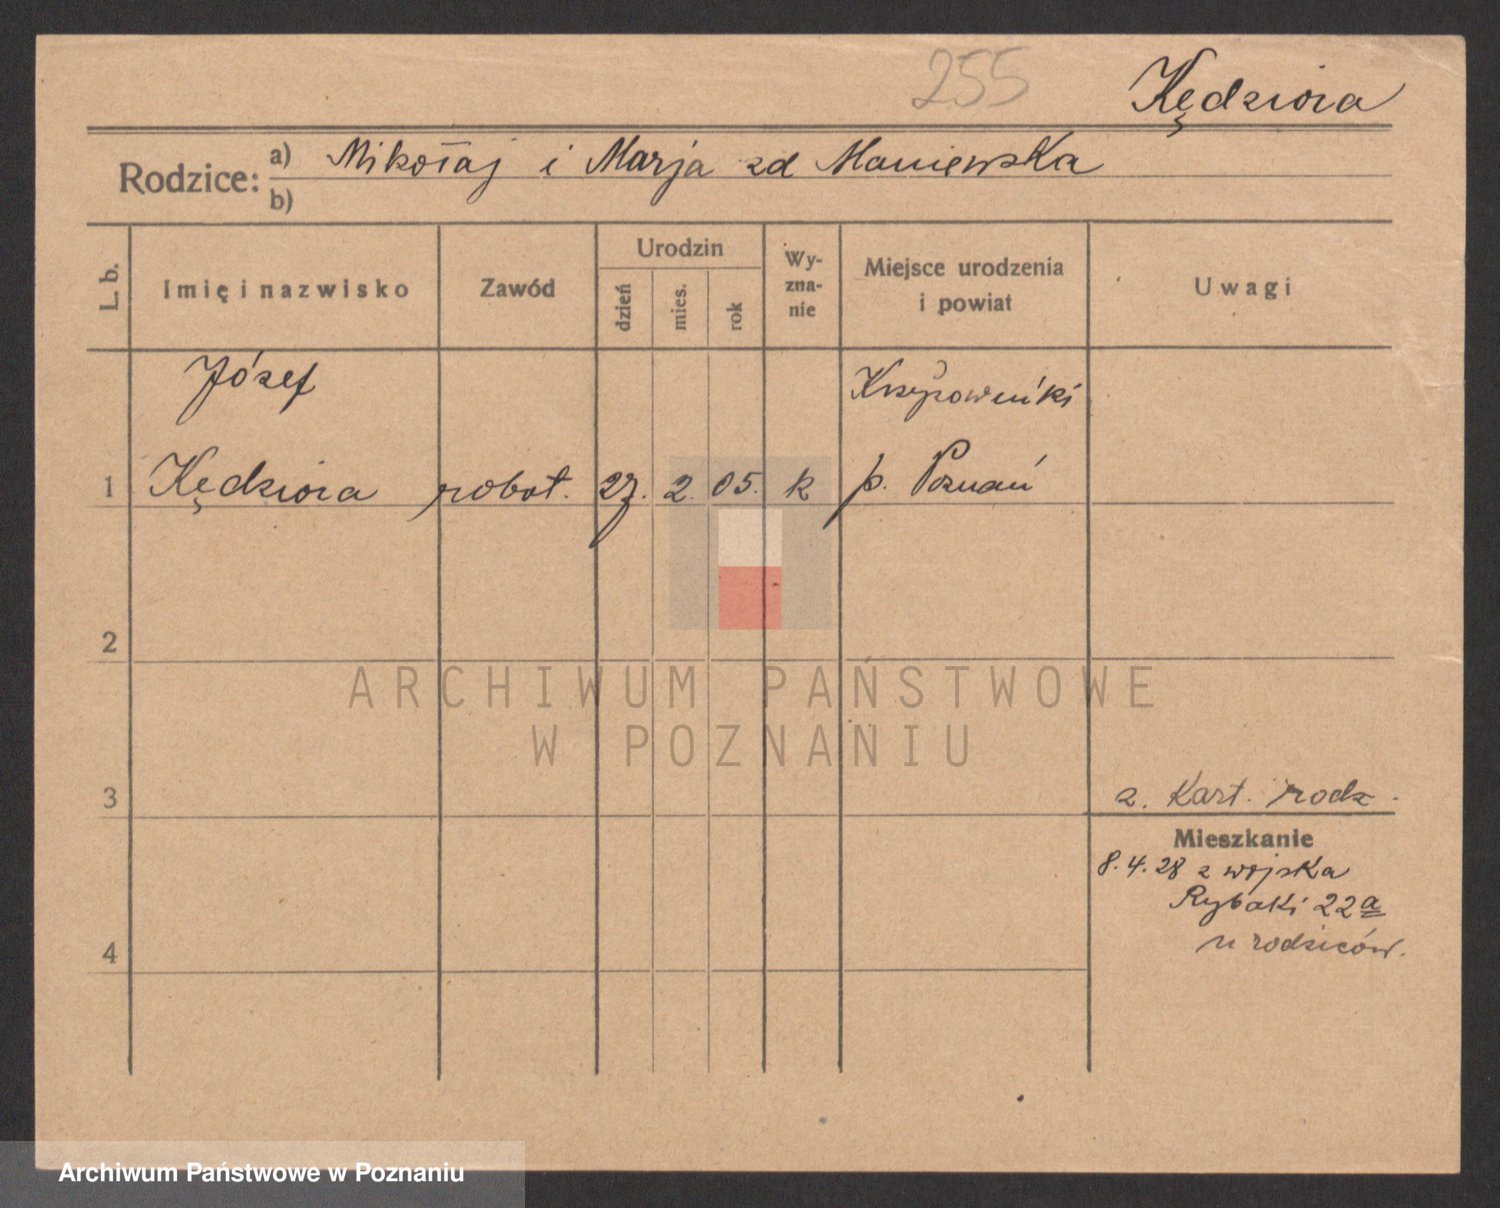 255 Kędziora
Rodzice: a) Mikołaj i Marja zd Maniewska
b)
L. b. Imię i nazwisko Zawód Urodzin dzień mies. rok Wyznanie Miejsce urodzenia i powiat Uwagi
Józef
1 Kędziora robot. 27. 2. 05. k p. Poznań
2
ARCHIWUM PAŃSTWOWE
W POZNANIU
3 z. Kart. rodz.
Mieszkanie
8.4.28 z wojska
Rybaki 22a
u rodziców.
4
Archiwum Państwowe w Poznaniu